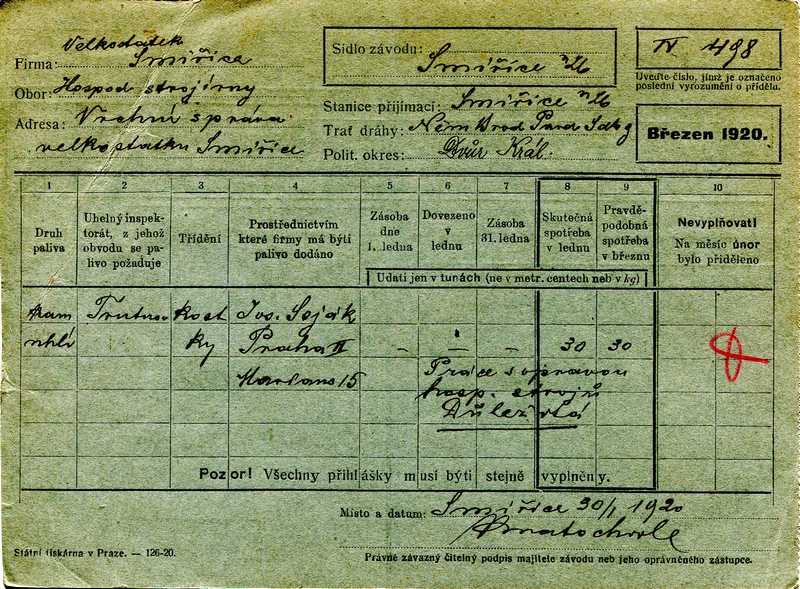 Velkostatek
Firma: Smiřice
Obor: Hospod strojírny
Adresa: Vrchní správa
velkostatku Smiřice
Sídlo závodu:
Smiřice n/L
Stanice přijímací: Smiřice n/L
Trať dráhy: Něm Brod Pard
Polit. okres: Dvůr Král.
IV 498
Uveďte číslo, jímž je označeno
poslední vyrozumění o přídělu.
Březen 1920.
1 2 3 4 5 6 7 8 9 10
Druh paliva
Uhelný inspektorát, z jehož obvodu se palivo požaduje
Třídění
Prostřednictvím které firmy má býti palivo dodáno
Zásoba dne 1. ledna
Dovezeno v lednu
Zásoba 31. ledna
Skutečná spotřeba v lednu
Pravděpodobná spotřeba v březnu
Nevyplňovati!
Na měsíc únor bylo přiděleno
Udati jen v tunách (ne v metr. centech neb v kg)
kam Trutnov kost Jos. Soják
uhlí ky Praha II - - 30 30
15
Práce s opravou
hosp. strojů
Důležitá
Pozor! Všechny přihlášky musí býti stejně vyplněny.
Místo a datum: Smiřice 30/1 1920
Státní tiskárna v Praze. — 126-20.
Právně závazný čitelný podpis majitele závodu neb jeho oprávněného zástupce.